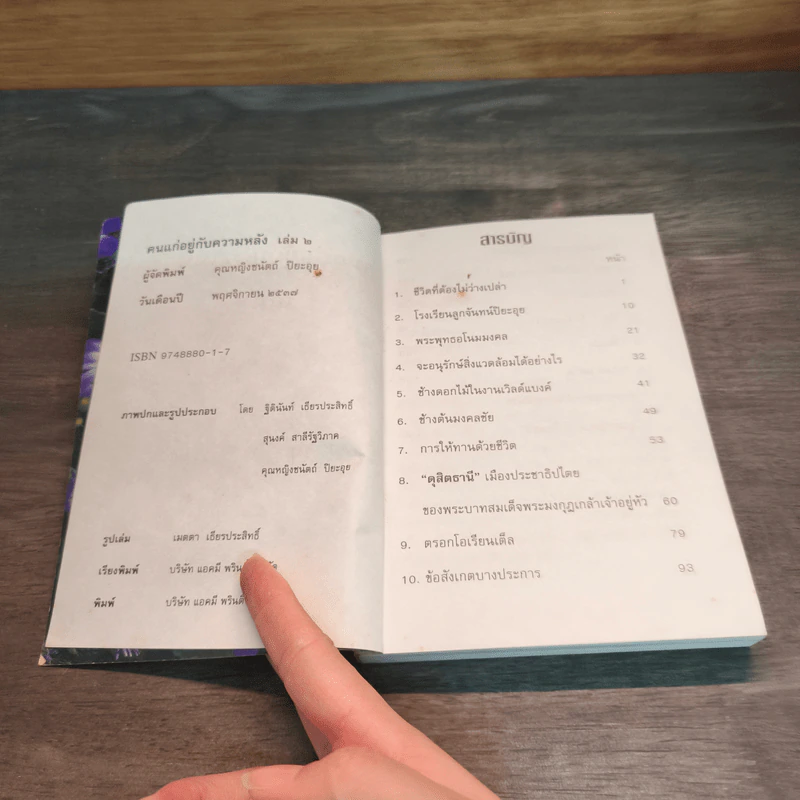 คนแก่อยู่กับความหลัง เล่ม ๒
ผู้จัดพิมพ์ คุณหญิงชนัตถ์ ปิยะอุย
วันเดือนปี พฤศจิกายน ๒๕๓๗
ISBN 9748880-1-7
ภาพปกและรูปประกอบ โดย ฐิตินันท์ เธียรประสิทธิ์
สุนงค์ สาลีรัฐวิภาค
คุณหญิงชนัตถ์ ปิยะอุย
รูปเล่ม เมตตา เธียรประสิทธิ์
เรียงพิมพ์ บริษัท แอคมี
พิมพ์ บริษัท แอคมี
สารบัญ
หน้า
1. ชีวิตที่ต้องไม่ว่างเปล่า 1
2. โรงเรียนลูกจันทน์ปิยะอุย 10
3. พระพุทธอโนมมงคล 21
4. จะอนุรักษ์สิ่งแวดล้อมได้อย่างไร 32
5. ช้างดอกไม้ในงานเวิลด์แบงค์ 41
6. ช้างต้นมงคลชัย 49
7. การให้ทานด้วยชีวิต 53
8. “ดุสิตธานี” เมืองประชาธิปไตย
ของพระบาทสมเด็จพระมงกุฎเกล้าเจ้าอยู่หัว 60
9. ตรอกโอเรียนเต็ล 79
10. ข้อสังเกตบางประการ 93